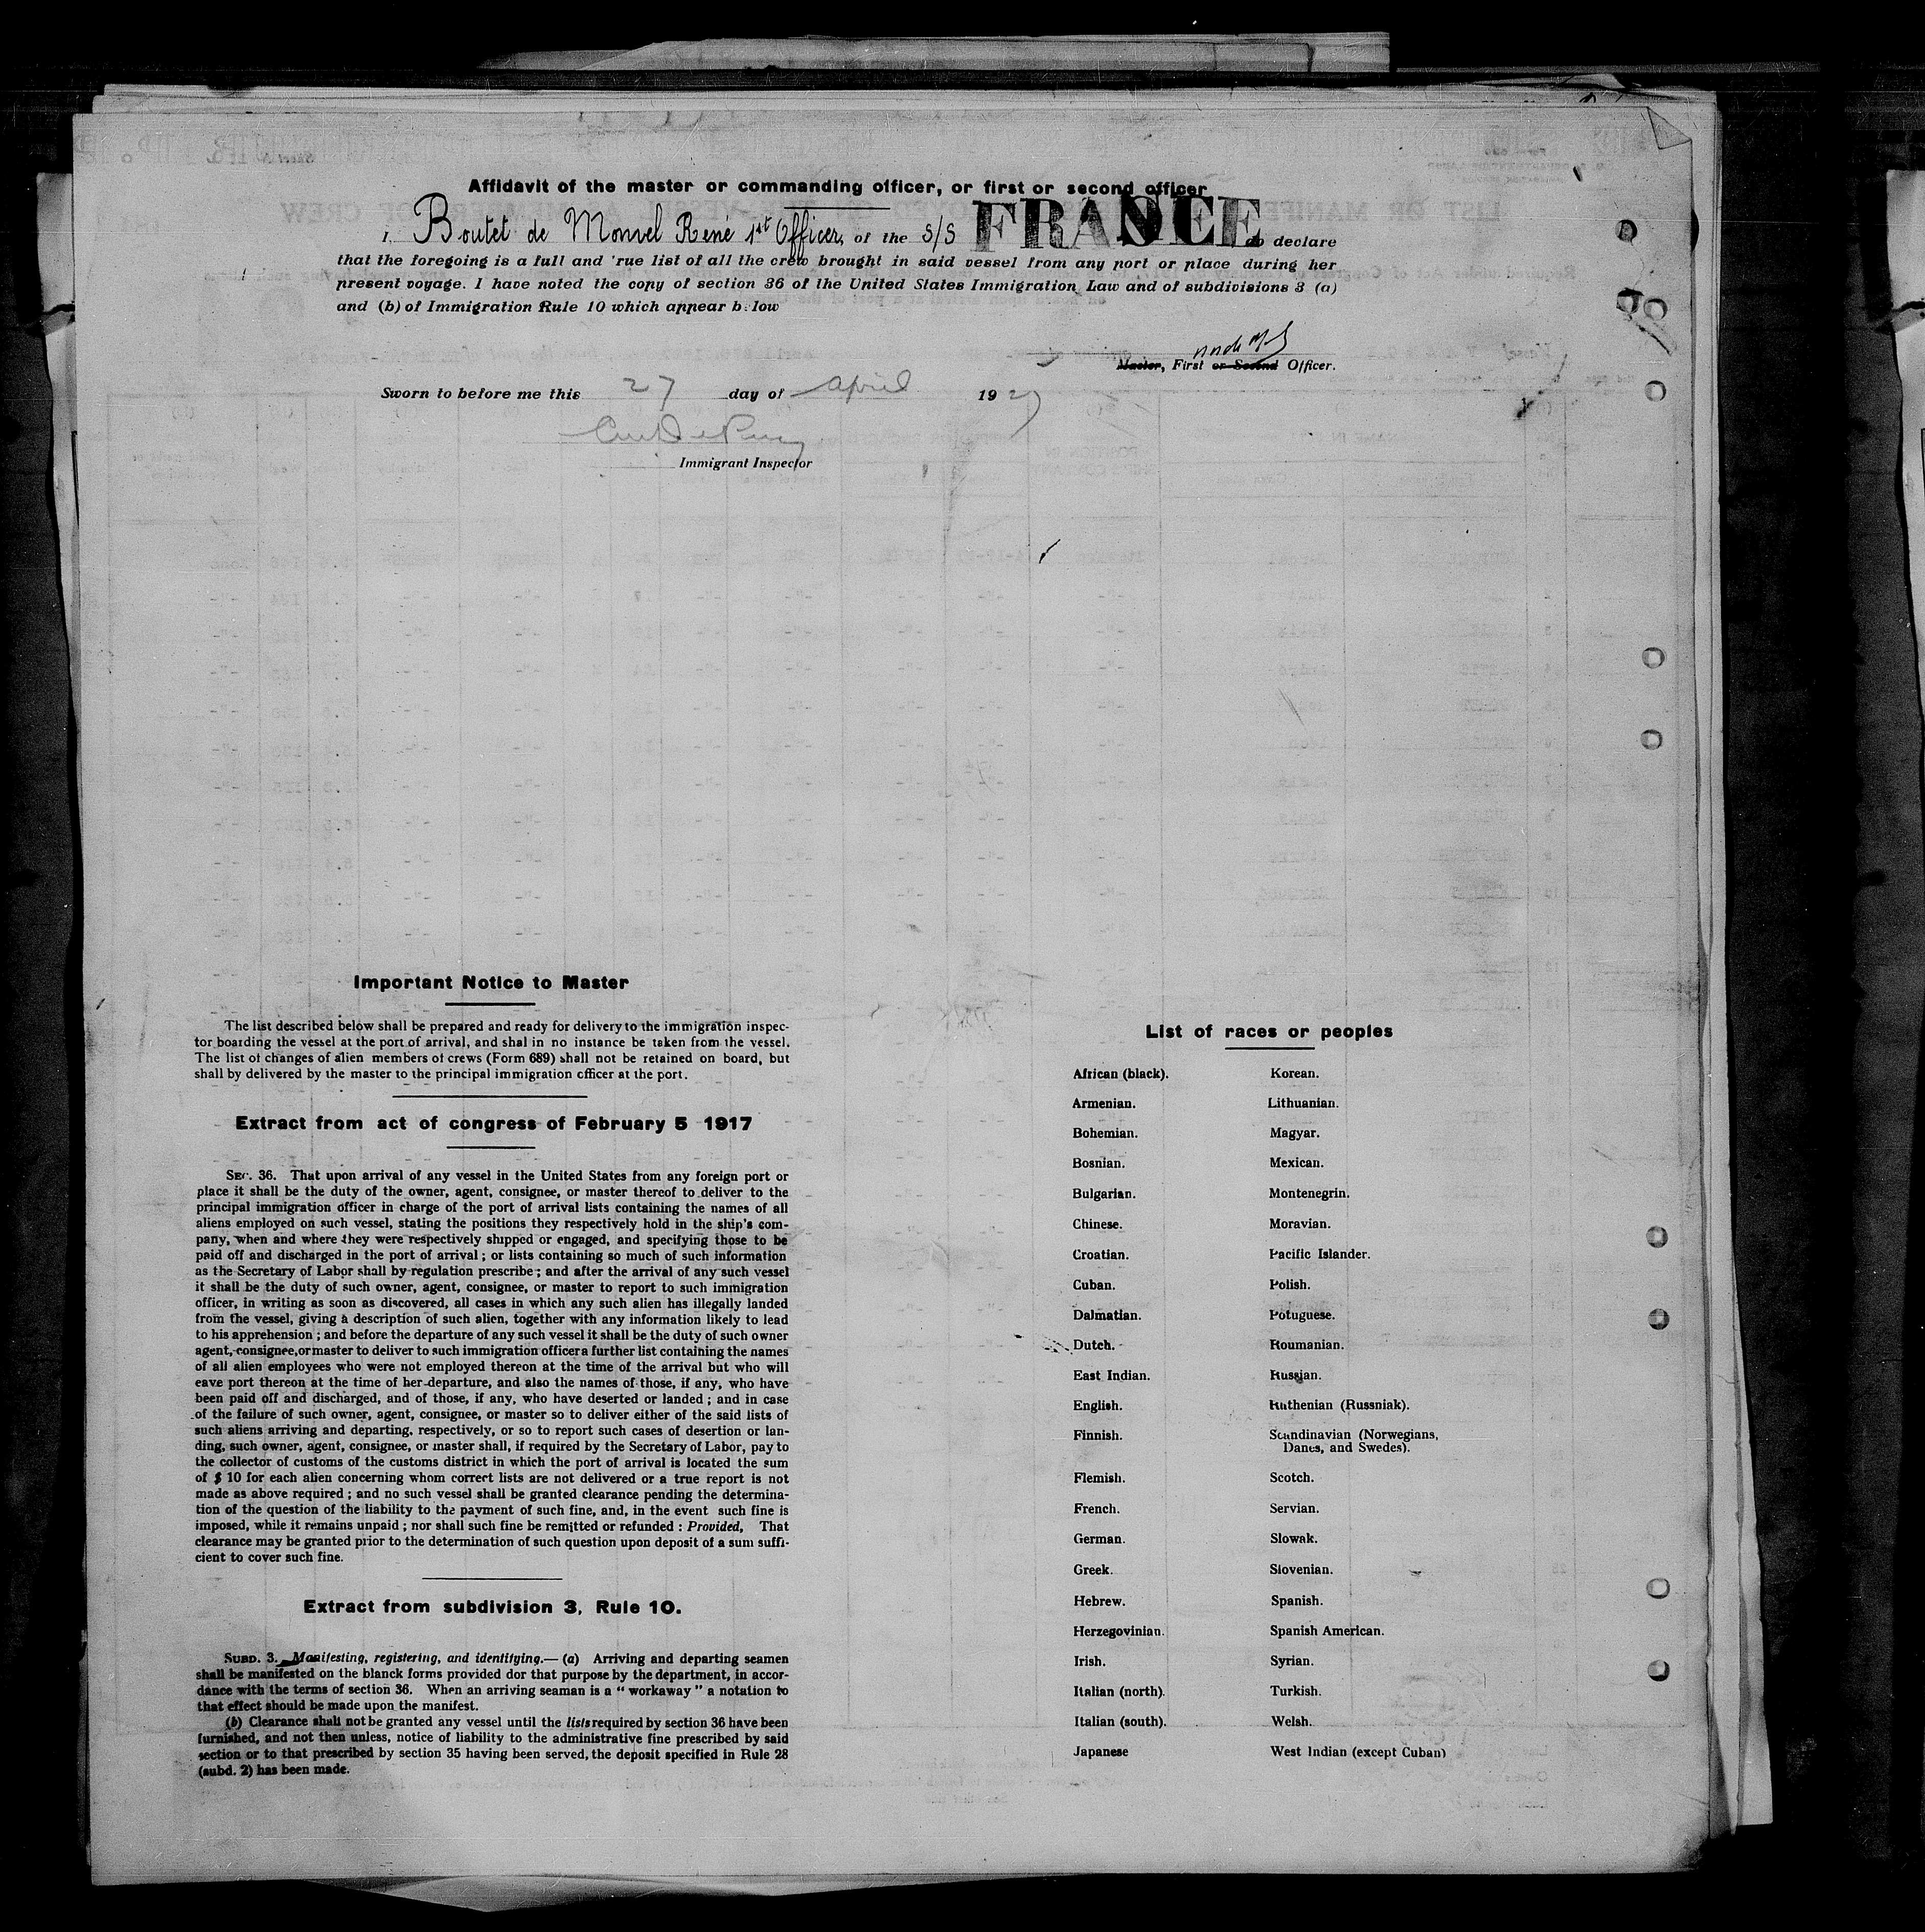 Affidavit of the master or commanding officer, or first or second officer
I, Boutet de Monvel René 1st Officer, of the S/S FRANCE do declare
that the foregoing is a full and 'rue list of all the crew brought in said vessel from any port or place during her
present voyage. I have noted the copy of section 36 of the United States Immigration Law and of subdivisions 3 (a)
and (b) of Immigration Rule 10 which appear b.low
Master, First or Second Officer.
Sworn to before me this 27 day of April 1927
Immigrant Inspector
Important Notice to Master
The list described below shall be prepared and ready for delivery to the immigration inspec-
tor boarding the vessel at the port of arrival, and shal in no instance be taken from the vessel.
The list of changes of alien members of crews (Form 689) shall not be retained on board, but
shall by delivered by the master to the principal immigration officer at the port.
Extract from act of congress of February 5 1917
SEC. 36. That upon arrival of any vessel in the United States from any foreign port or
place it shall be the duty of the owner, agent, consignee, or master thereof to deliver to the
principal immigration officer in charge of the port of arrival lists containing the names of all
aliens employed on such vessel, stating the positions they respectively hold in the ship's com-
pany, when and where they were respectively shipped or engaged, and specifying those to be
paid off and discharged in the port of arrival ; or lists containing so much of such information
as the Secretary of Labor shall by regulation prescribe ; and after the arrival of any such vessel
it shall be the duty of such owner, agent, consignee, or master to report to such immigration
officer, in writing as soon as discovered, all cases in which any such alien has illegally landed
from the vessel, giving a description of such alien, together with any information likely to lead
to his apprehension ; and before the departure of any such vessel it shall be the duty of such owner
agent, consignee, or master to deliver to such immigration officer a further list containing the names
of all alien employees who were not employed thereon at the time of the arrival but who will
eave port thereon at the time of her departure, and also the names of those, if any, who have
been paid off and discharged, and of those, if any, who have deserted or landed ; and in case
of the failure of such owner, agent, consignee, or master so to deliver either of the said lists of
such aliens arriving and departing, respectively, or so to report such cases of desertion or lan-
ding, such owner, agent, consignee, or master shall, if required by the Secretary of Labor, pay to
the collector of customs of the customs district in which the port of arrival is located the sum
of $ 10 for each alien concerning whom correct lists are not delivered or a true report is not
made as above required ; and no such vessel shall be granted clearance pending the determina-
tion of the question of the liability to the payment of such fine, and, in the event such fine is
imposed, while it remains unpaid ; nor shall such fine be remitted or refunded : Provided, That
clearance may be granted prior to the determination of such question upon deposit of a sum suffi-
cient to cover such fine.
Extract from subdivision 3, Rule 10.
SUBD. 3. Manifesting, registering, and identifying.— (a) Arriving and departing seamen
shall be manifested on the blanck forms provided dor that purpose by the department, in accor-
dance with the terms of section 36. When an arriving seaman is a " workaway " a notation to
that effect should be made upon the manifest.
(b) Clearance shall not be granted any vessel until the lists required by section 36 have been
furnished, and not then unless, notice of liability to the administrative fine prescribed by said
section or to that prescribed by section 35 having been served, the deposit specified in Rule 28
(subd. 2) has been made.
List of races or peoples
African (black).
Armenian.
Bohemian.
Bosnian.
Bulgarian.
Chinese.
Croatian.
Cuban.
Dalmatian.
Dutch.
East Indian.
English.
Finnish.
Flemish.
French.
German.
Greek.
Hebrew.
Herzegovinian.
Irish.
Italian (north).
Italian (south).
Japanese
Korean.
Lithuanian.
Magyar.
Mexican.
Montenegrin.
Moravian.
Pacific Islander.
Polish.
Potuguese.
Roumanian.
Russian.
Ruthenian (Russniak).
Scandinavian (Norwegians,
Danes, and Swedes).
Scotch.
Servian.
Slowak.
Slovenian.
Spanish.
Spanish American.
Syrian.
Turkish.
Welsh.
West Indian (except Cuban)